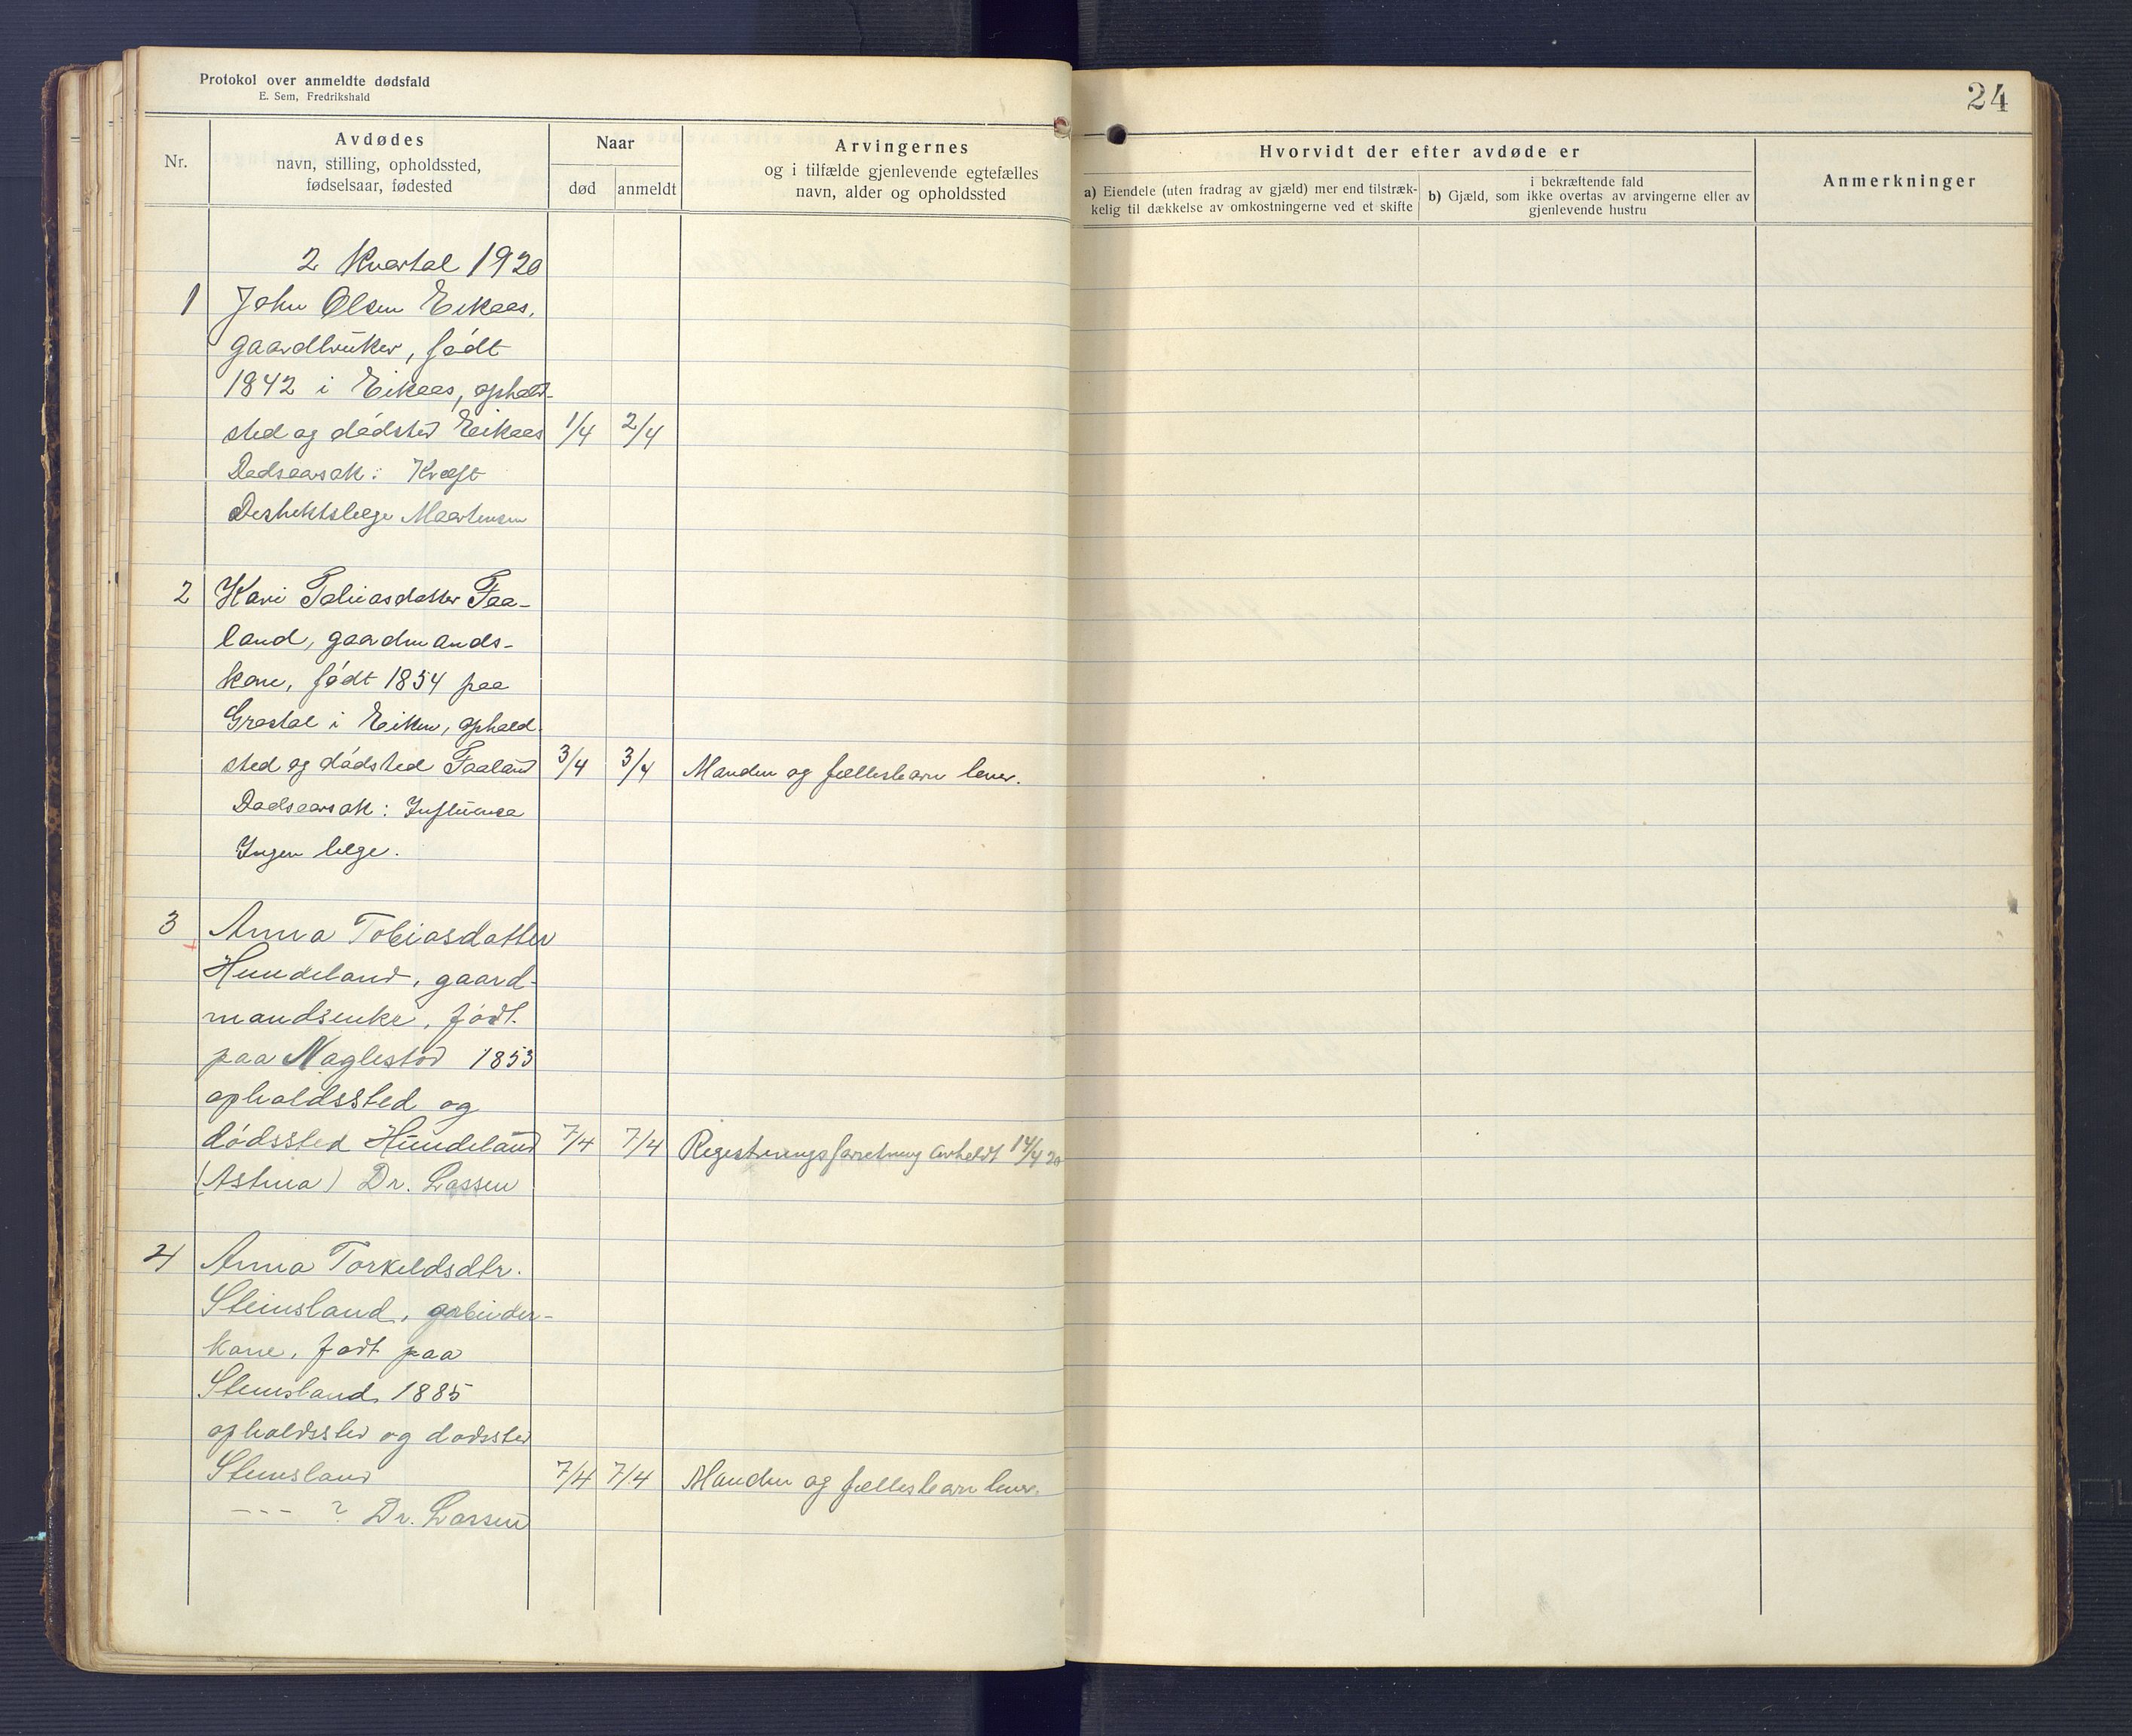 Protokol over anmeldte dødsfald
E. Sem, Fredrikshald
24
Nr.
Avdødes
navn, stilling, opholdssted,
fødselsaar, fødested
Naar
død
anmeldt
Arvingernes
og i tilfælde gjenlevende egtefælles
navn, alder og opholdssted
Hvorvidt der efter avdøde er
a) Eiendele (uten fradrag av gjæld) mer end tilstræk-
kelig til dækkelse av omkostningerne ved et skifte
i bekræftende fald
b) Gjæld, som ikke overtas av arvingerne eller av
gjenlevende hustru
Anmerkninger
2 Kvartal 1920
1 John Olsen Eikaas,
gaardbruker, født
1842 i Eikaas, ophold-
sted og dødsted Eikaas 1/4 2/4
Dødsaarsak: Kræft
Distriktslæge Maartensen
2 Kari Tobiasdatter Faa-
land, gaardmands-
kone, født 1854 paa
i Eiken, ophold
sted og dødsted Faaland 3/4 3/4 Manden og fællesbarn lever.
Dødsaarsak: Influensa
Ingen læge.
3 Anna Tobiasdatter
Hundeland, gaard-
mandsenke, født
paa Naglestad 1853
opholdssted og
dødssted Hundeland 7/4 7/4 Registreringsforretning avholdt 14/4 20
(Astma) Dr. Lassen
4 Anna Torkeldsdtr.
Steinsland,
kone, født paa
Steinsland 1885
opholdssted og dødssted
Steinsland 7/4 7/4 Manden og fællesbarn lever.
--- ? Dr. Lassen